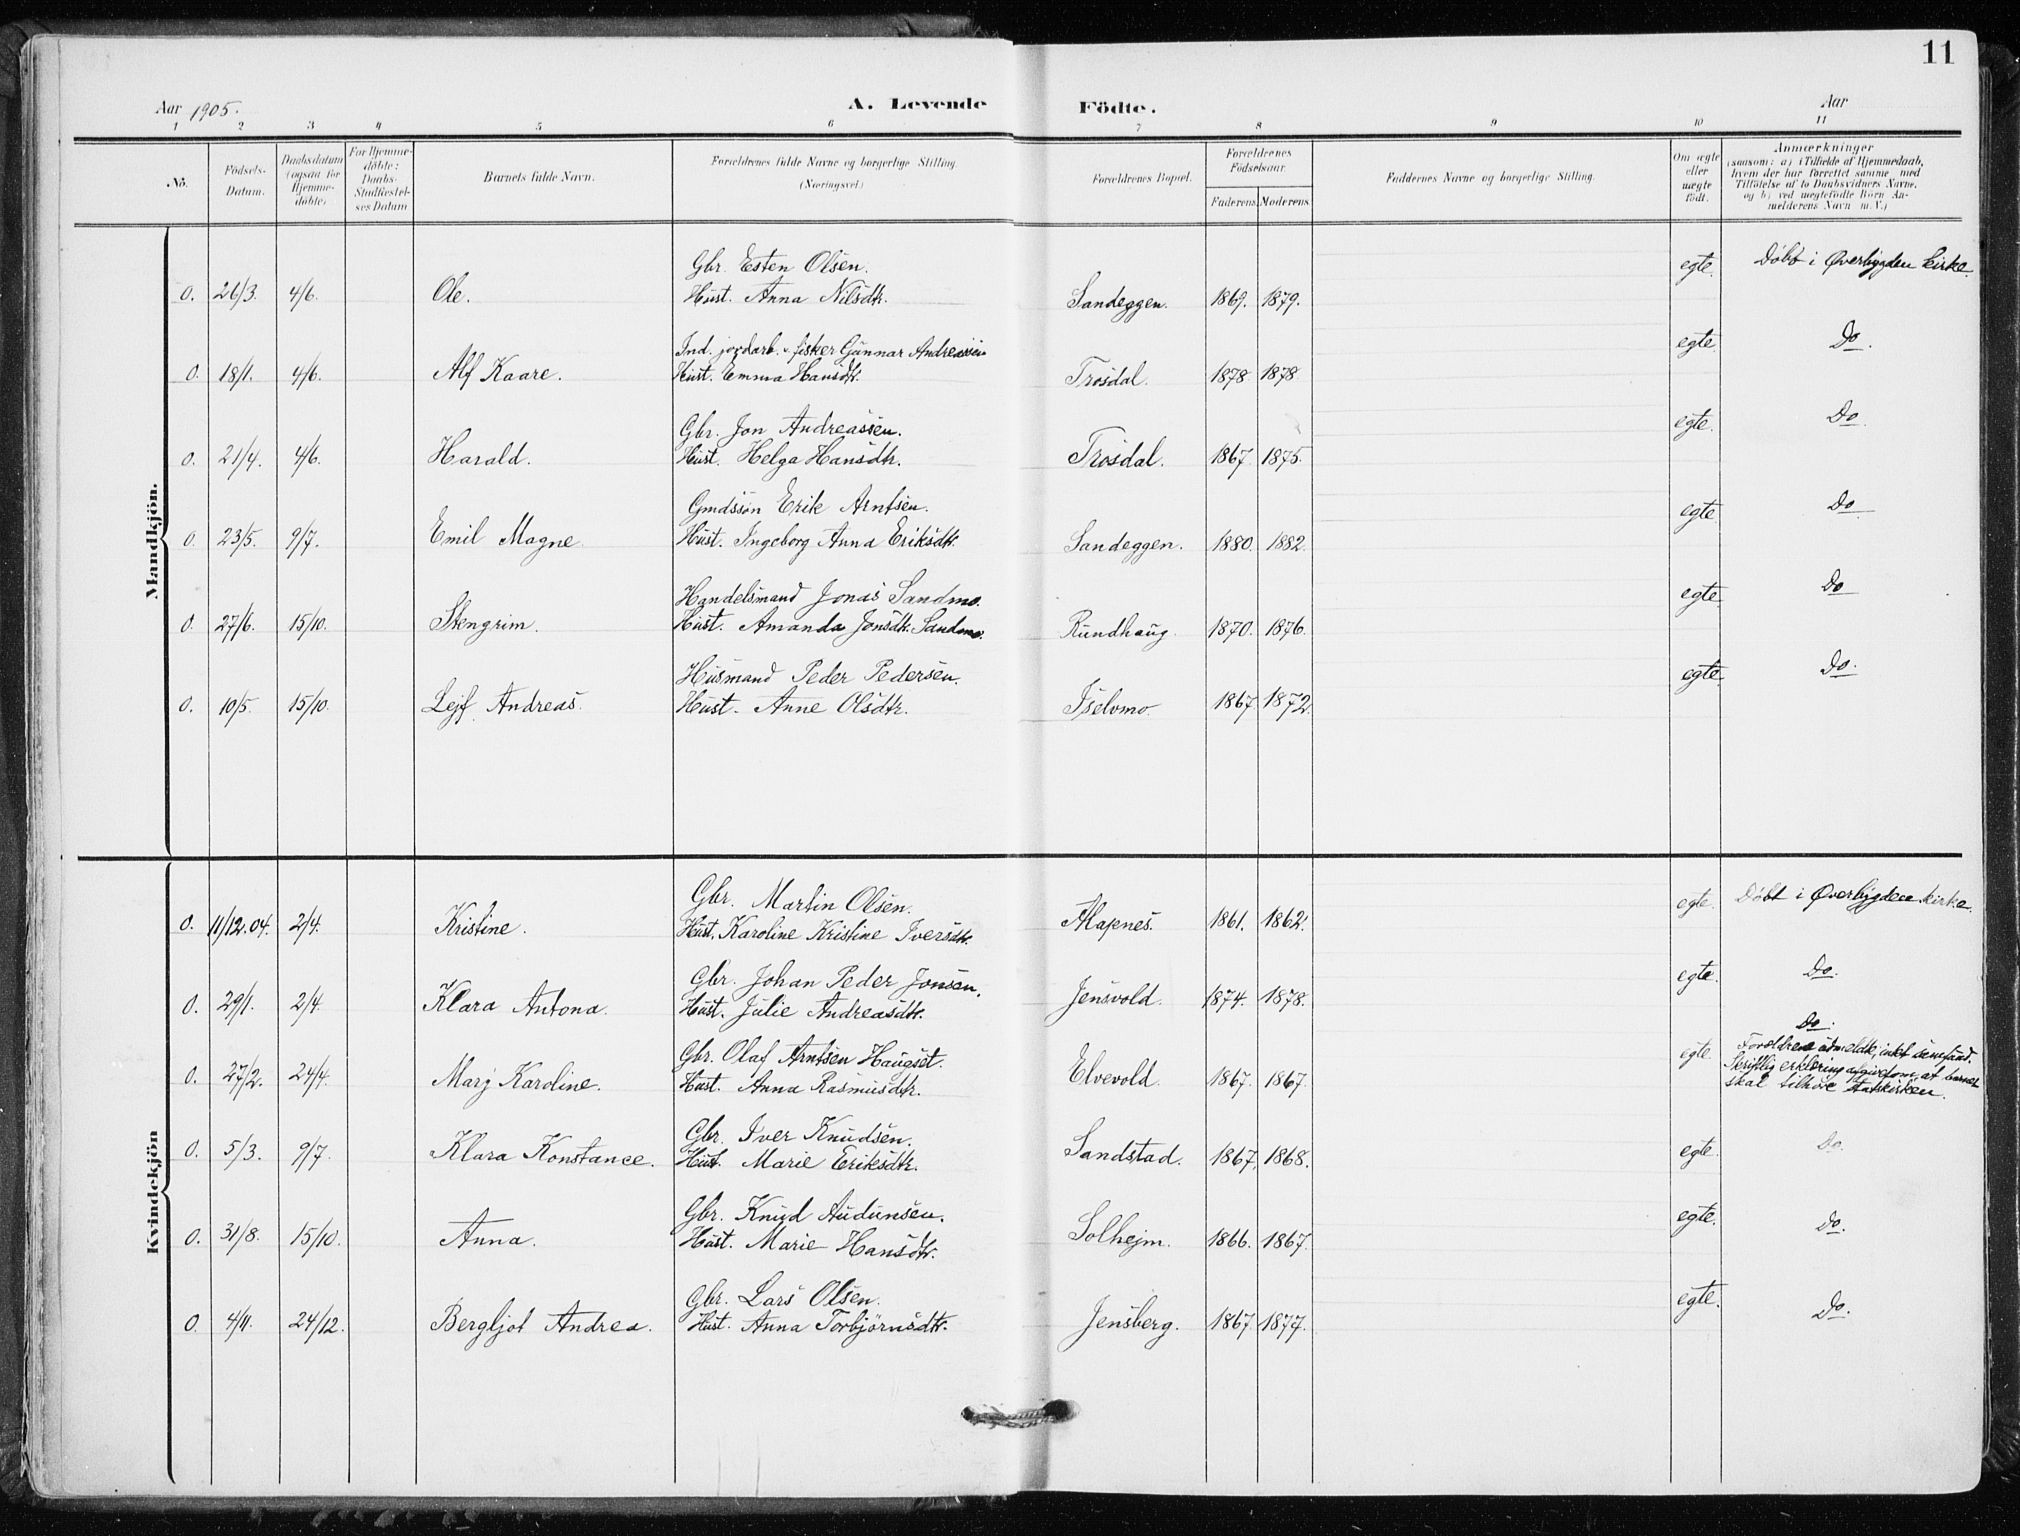 11
Aar 1905. A. Levende Födte. Aar
1 2 3 4 5 6 7 8 9 10 11
No. Födsels-Datum. Daabsdatum (ogsaa for Hjemme-døbte) For Hjemme-døbte: Daabs-Stadfæstel-ses Datum Barnets fulde Navn. Forældrenes fulde Navne og borgerlige Stilling. (Næringsvei) Forældrenes Bopæl. Forældrenes Födselsaar. Faderens Moderens Faddernes Navne og borgerlige Stilling. Om ægte eller uægte födt. Anmærkninger (saasom: a) i Tilfælde af Hjemmedaab, hvem der har forrettet samme med Tilföielse af to Daabsvidners Navne, og b) ved uægtefödte Börn An-melderens Navn m.V.)
Mandkjön.
Gbr. Esten Olsen. egte. Döbt i Øverbygden kirke.
0. 26/3. 4/6. Ole. Hust. Anna Nilsdtr. Sandeggen. 1869. 1879.
Ind. jordarb. & fisker Gunnar Andreassen egte. Do.
0. 18/1. 4/6. Alf Kaare. Hust. Emma Hansdtr. Trosdal. 1878 1878
Gbr. Jon Andreassen. egte. Do
0. 21/4. 4/6. Harald. Hust. Helga Hansdtr. Trosdal. 1867. 1875.
Gmdssøn Erik Arntsen. egte Do
0. 23/5. 9/7. Emil Magne. Hust. Ingeborg Anna Eriksdtr. Sandeggen. 1880. 1882.
Handelsmand Jonas Sandmo. egte. Do
0. 27/6. 15/10. Stengrim. Hust. Amanda Jonsdtr. Sandmo. Rundhaug. 1870. 1876.
Husmand Peder Pedersen. egte. Do.
0. 10/5. 15/10. Lejf Andreas. Hust. Anne Olsdtr. Iselvmo. 1867 1872.
Kvindekjön
Gbr. Martin Olsen. egte. Döbt i Øverbygden kirke.
0. 11/12.04. 2/4. Kristine. Hust. Karoline Kristine Iversdtr. 1861. 1862.
Gbr. Johan Peder Jonsen. egte. Do.
0. 29/1. 2/4. Klara Antona. Hust. Julie Andreasdtr. Jensvold. 1874. 1878.
Do.
Gbr. Olaf Arntsen Haugset. egte. Foroldrene udmeldte, intet samfund.
Skriftlig erklering afgivet om at barnet
0. 27/2. 24/4. Marj Karoline. Hust. Anna Rasmusdtr. Elvevold. 1867. 1867. skal tilhøre statskirken.
Gbr. Iver Knudsen. egte. Do.
0. 5/3. 9/7. Klara Konstance. Hust. Marie Eriksdtr. Sandstad. 1867. 1868.
Gbr. Knud Audunsen. egte. Do.
0. 31/8. 15/10. Anna. Hust. Marie Hansdtr. Solhejm. 1866. 1867.
Gbr. Lars Olsen. egte. Do.
0. 4/11. 24/12. Bergljot Andrea. Hust. Anna Torbjørnsdtr. Jensberg. 1867. 1877.